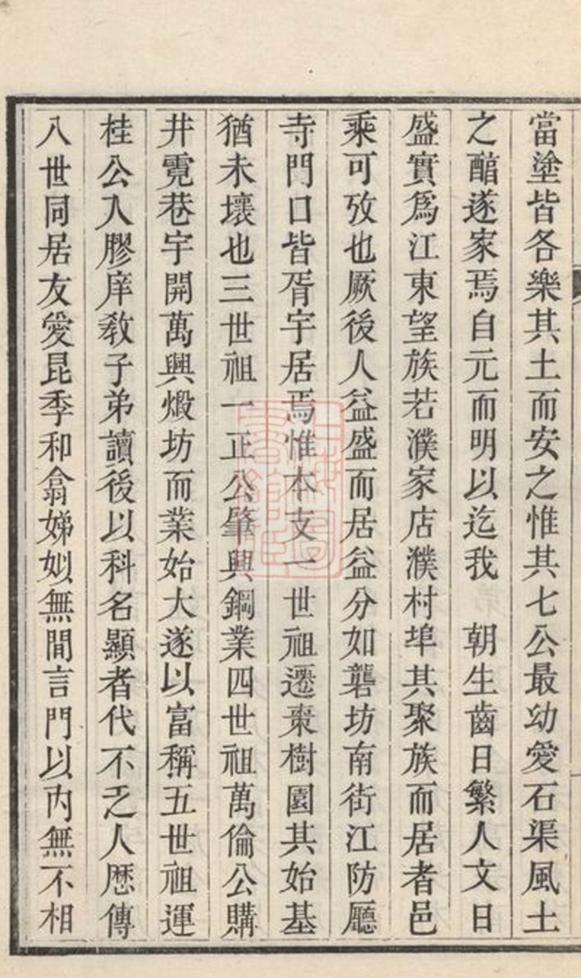 當塗皆各樂其土而安之惟其七公最幼愛石渠風土
之醕遂家焉自元而明以迄我　朝生齒日繁人文日
盛實爲江東望族若濮家店濮村埠其聚族而居者邑
乘可攷也厥後人益盛而居益分如礱坊南街江防廳
寺門口皆胥宇居焉惟本支一世祖遷棗樹園其始基
猶未壞也三世祖一正公肇興鋼業四世祖萬倫公購
井霓巷宇開萬興煅坊而業始大遂以富稱五世祖運
桂公入膠庠敎子弟讀後以科名顯者代不乏人歴傳
八世同居友愛昆季和翕娣姒無間言門以內無不相